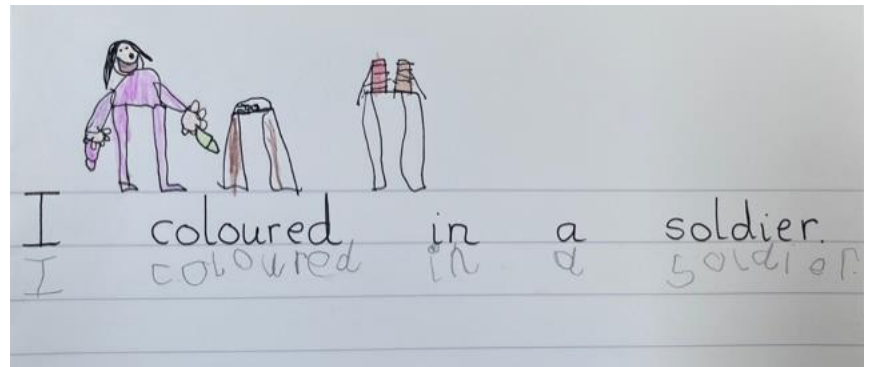 I coloured in a soldier.
I coloured in a soldier.